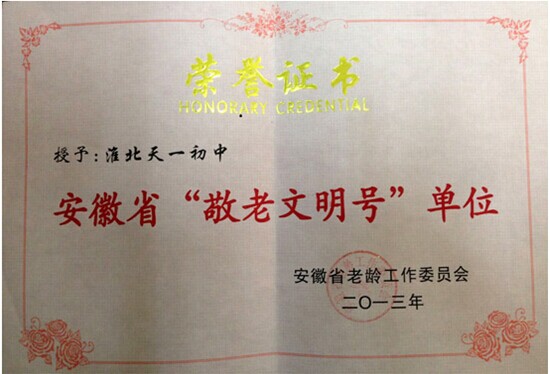 荣誉证书
HONORARY CREDENTIAL
授予：淮北天一初中
安徽省“敬老文明号”单位
安徽省老龄工作委员会
二〇一三年